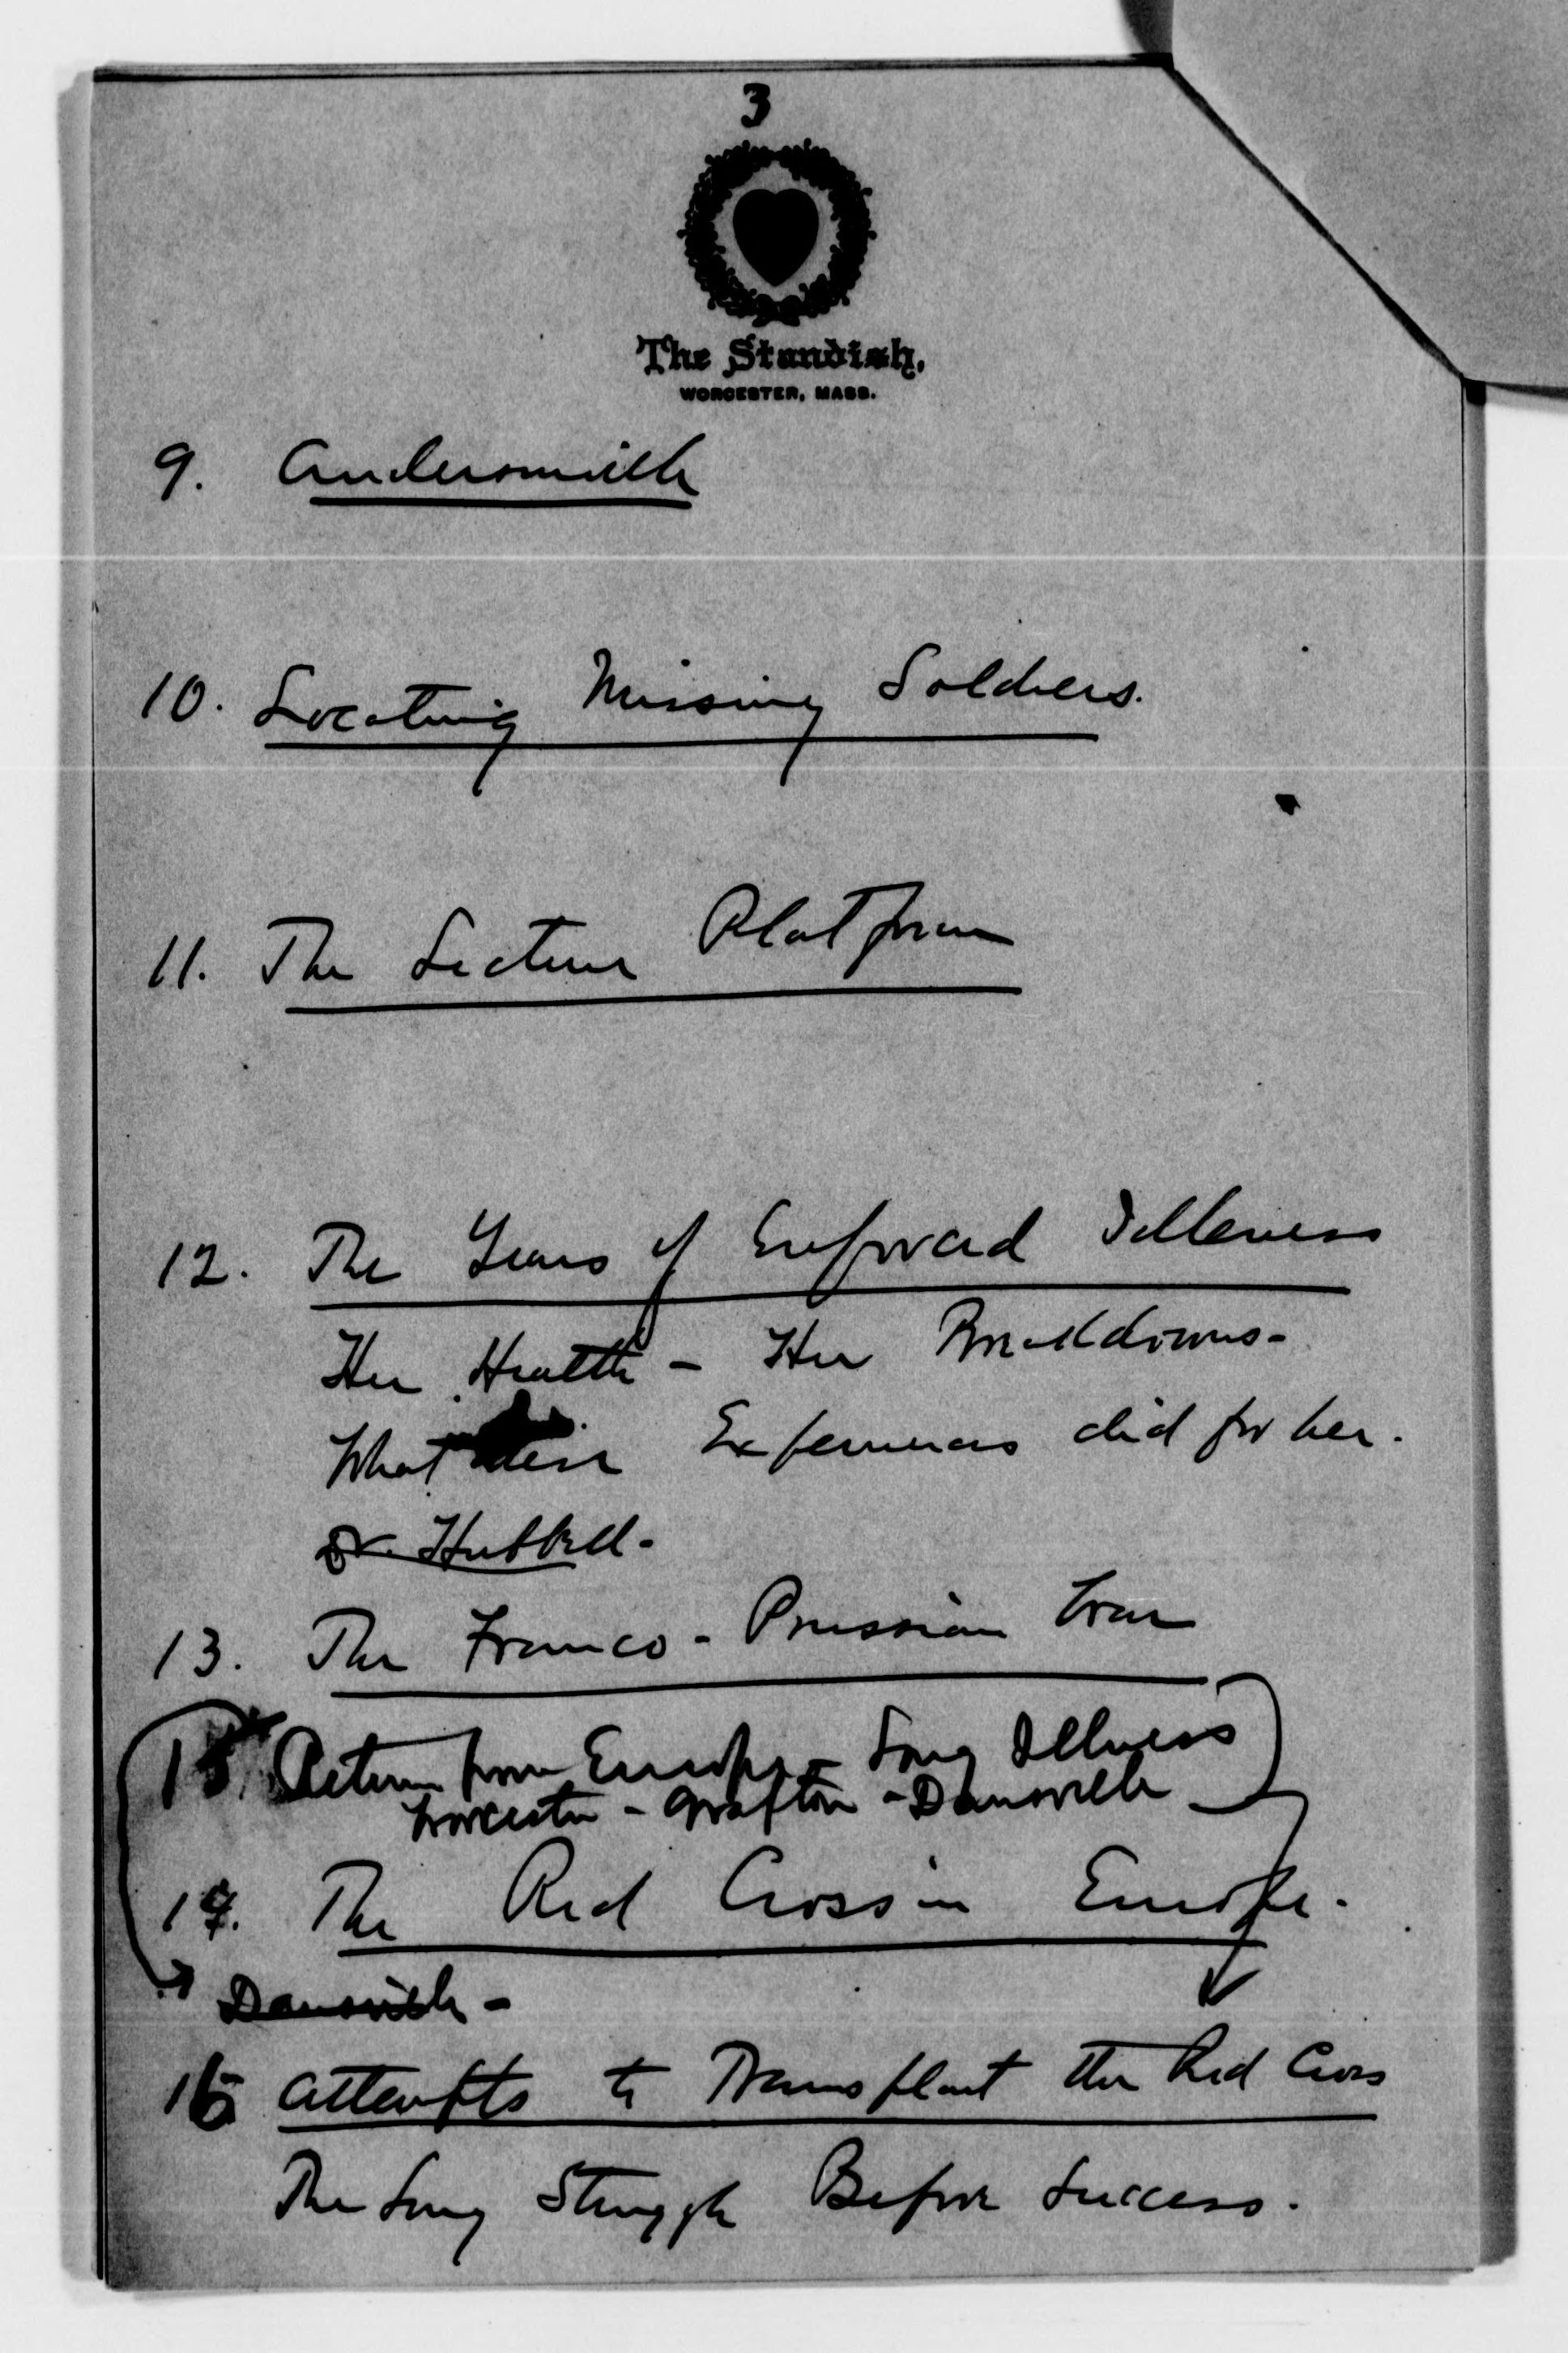 3
The Standish,
WORCESTER, MASS.
9. Andersonville
10. Locating Missing Soldiers.
11. The Lecture Platform
12. The Years of Enforced Idleness
Her Health - Her Breakdowns-
What their Experiences did for her.
Dr. Hubbell.
13. The Franco-Prussian War
15. Return from Europe - Long Illness
Worcester - Grafton - Dansville
14. The Red Cross in Europe.
Dansville -
16 Attempts to Transplant the Red Cross
The Long Struggle Before Success.